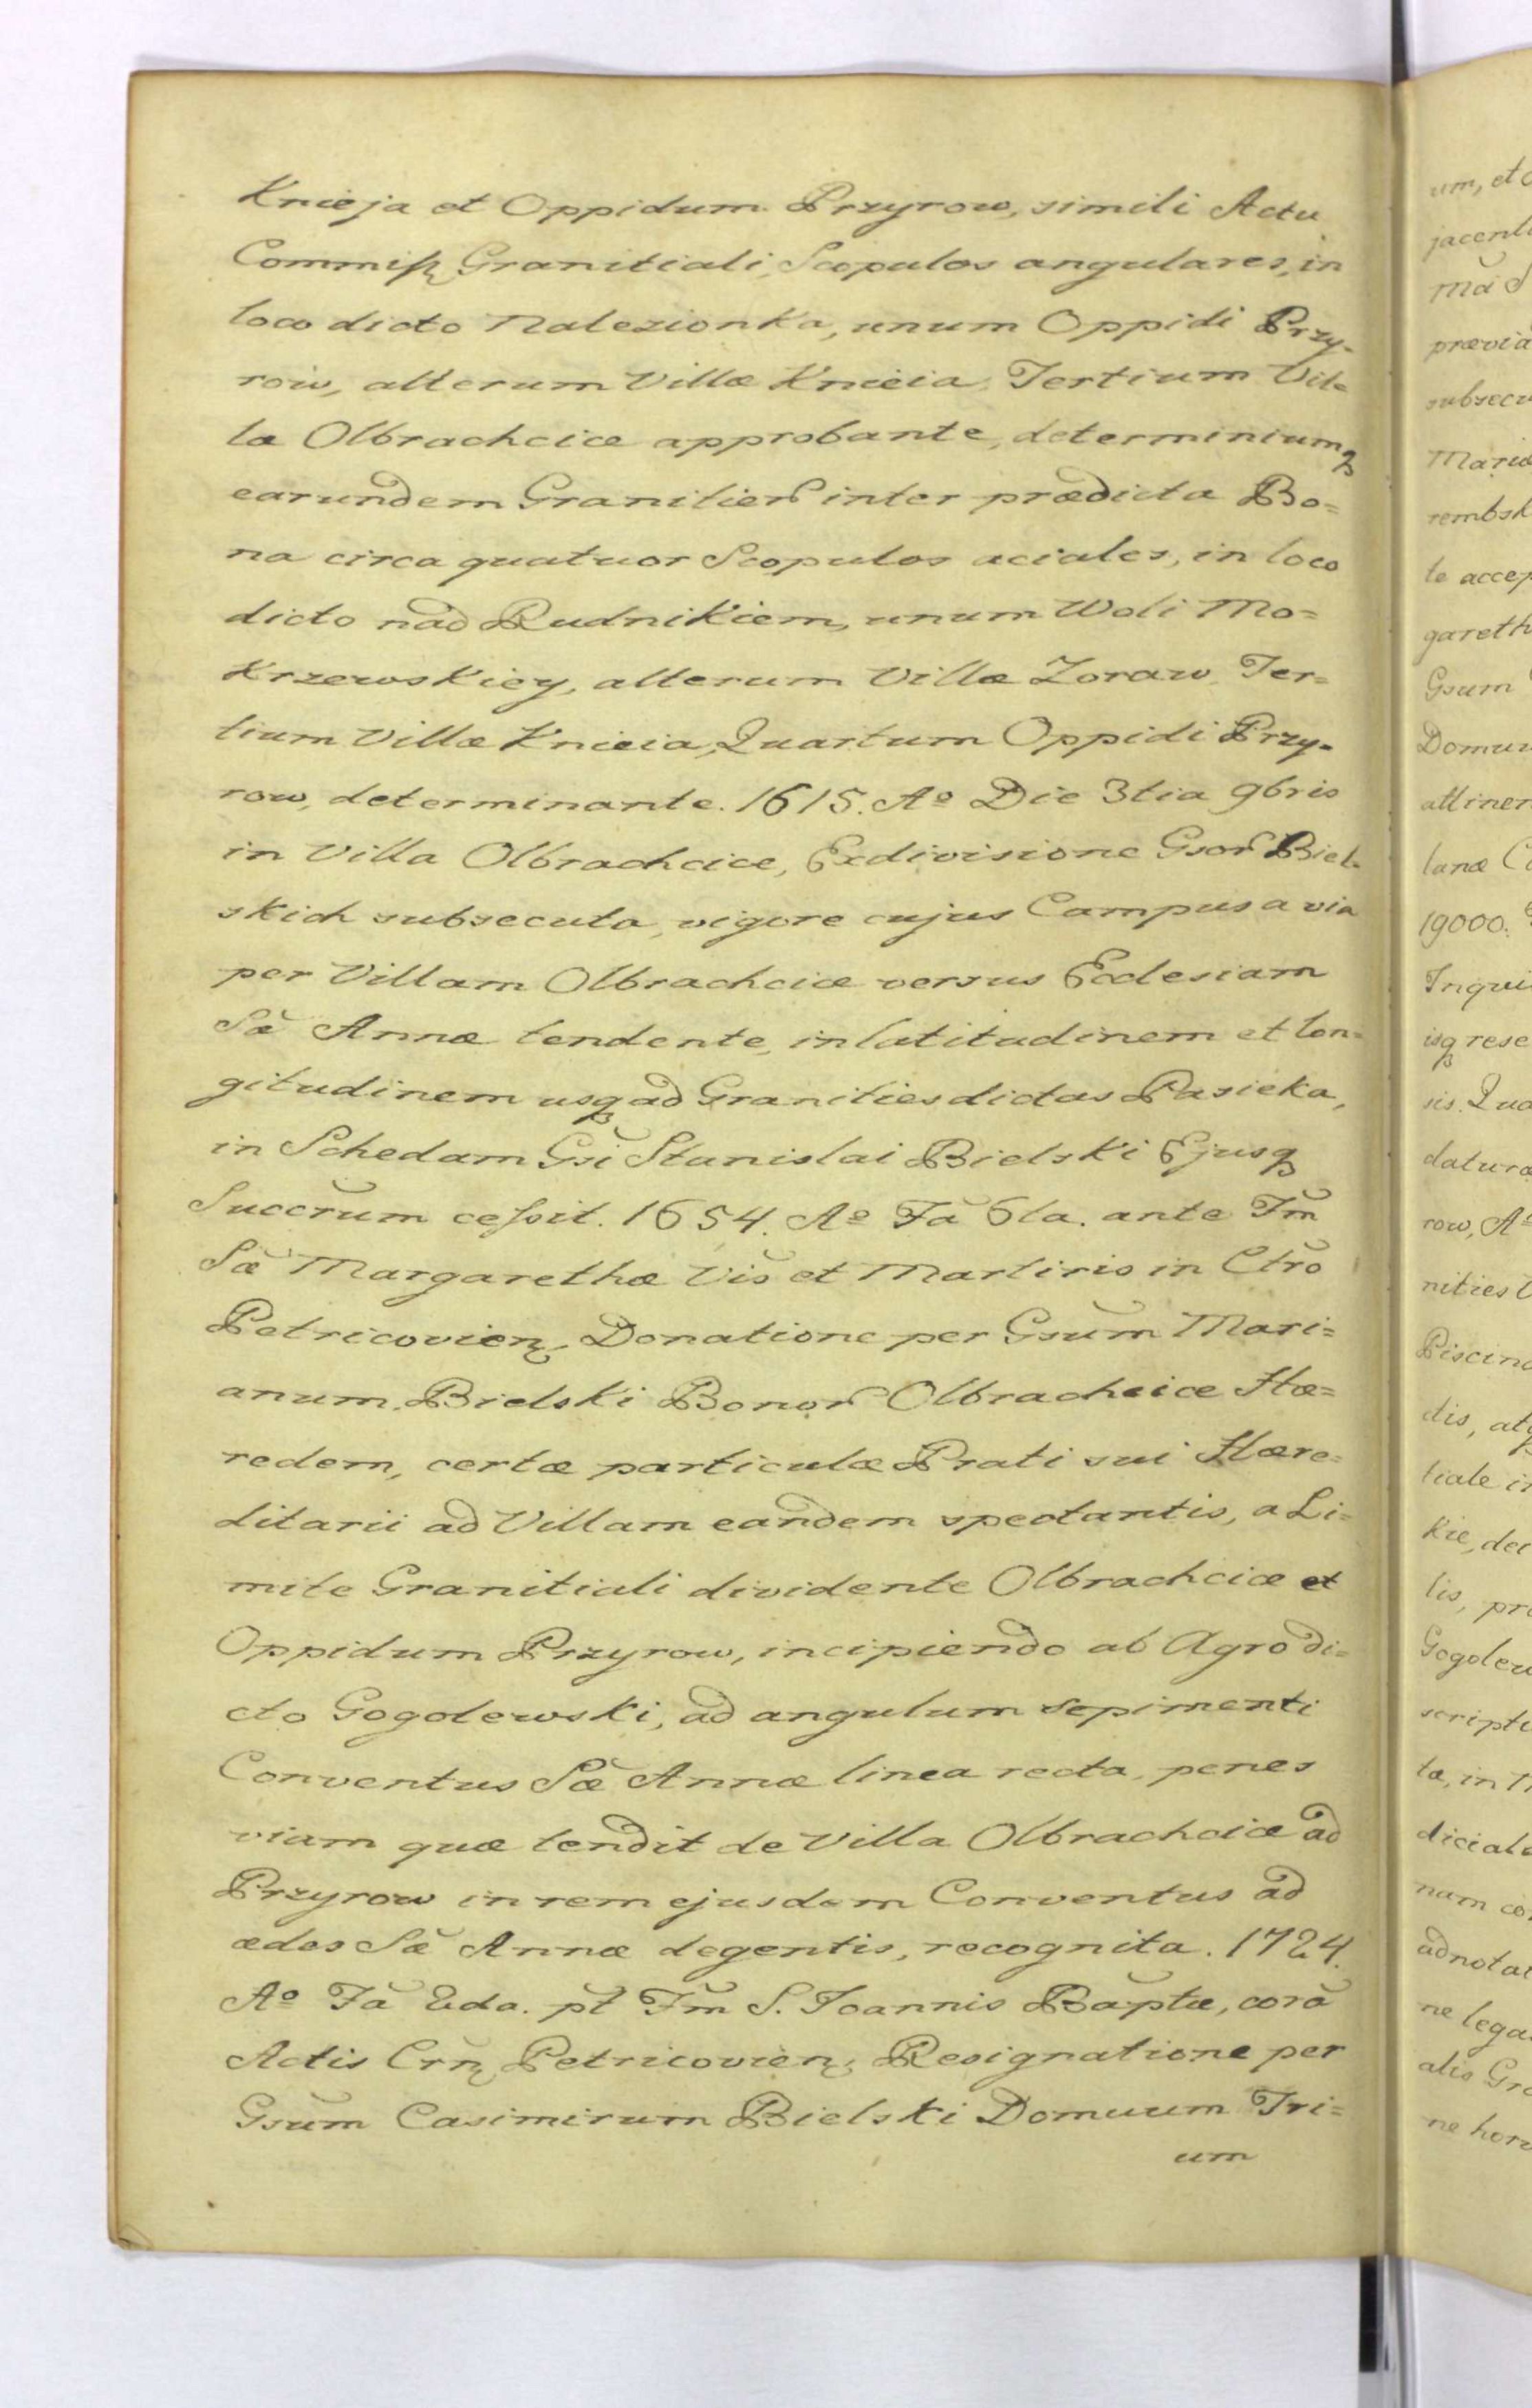 Knieja et Oppidum Przyrow, simili Actu
Commiſs Granitiali, Scopulos angulares, in
loco dicto Nalezionka, unum Oppidi Przy-
row, alterum Villæ Knieia, Tertium Vil=
læ Olbrachcice approbante, determiniumq
earundem Granitier inter prædicta Bo=
na circa quatuor Scopulos aciales, in loco
dicto nad Rudnikiem, unum Woli Mo=
krzewskiey, alterum Villæ Zoraw, Ter=
tium Villæ Knieia, Quartum Oppidi Przy-
row, determinante. 1615. Aº Die 3tia 9bris
in Villa Olbrachcice, Exdivisione Gsor Biel-
skich subsecuta, vigore cujus Campus a via
per Villam Olbrachcice versus Ecclesiam
Sæ̃ Annæ tendente, in latitudinem et lon=
gitudinem usq ad Granities dictas Pasieka,
in Schedam Gsĩ Stanislai Bielski Ejusq
Succrũm ceſsit. 1654. Aº Fã 6ta. ante Fm̃
Sæ̃ Margarethæ Viš et Martiris in Ctrõ
Petricovien, Donatione per Gsũm Mari=
anum Bielski Bonor Olbrachcice Hæ=
redem, certæ particulæ Prati sui Hære=
ditarii ad Villam eandem spectantis, a Li=
mite Granitiali dividente Olbrachcice et
Oppidum Przyrow, incipiendo ab Agro di=
cto Gogolewski, ad angulum sepimenti
Conventus Sæ̃ Annæ linea recta, penes
viam quæ tendit de Villa Olbrachcice ad
Przyrow in rem ejusdem Conventus ad
ædes Sæ̃ Annæ degentis, recognita. 1724.
Aº Fã 2da. pt̃ Fm̃ S. Joannis Bap̃tæ, corã
Actis Crñ Petricovien, Resignatione per
Gsũm Casimirum Bielski Domuum Tri=
um
um, et
jacenti
mã
prævia
subsecu
Maria
rembsk
te accep
gareth
Gsum
Domuu
attinen
lanæ
19000.
Inqui
isq rese
sis. Qua
datura
row, Aº
nities
Piscina
dis, atq
tiale in
kie, det
lis, pro
Gogolew
scripti
tæ, in
diciale
nam co
adnotat
ne lega
alis Gra
ne horu